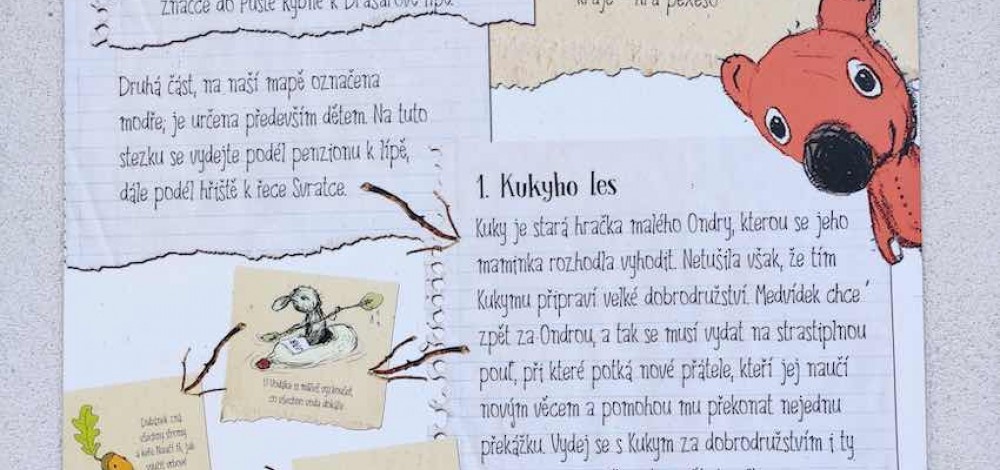 značce do Pusté Rybné k Drašarově lípě
kraje - hra pexeso
Druhá část, na naší mapě označena
modře, je určena především dětem. Na tuto
stezku se vydejte podél penzionu k lípě,
dále podél hřiště k řece Svratce.
1. Kukyho les
Kuky je stará hračka malého Ondry, kterou se jeho
maminka rozhodla vyhodit. Netušila však, že tím
Kukymu připraví velké dobrodružství. Medvídek chce
zpět za Ondrou, a tak se musí vydat na strastiplnou
pouť, při které potká nové přátele, kteří jej naučí
novým věcem a pomohou mu překonat nejednu
překážku. Vydej se s Kukym za dobrodružstvím i ty
U Vodáka si můžeš vyzkoušet,
co všechno voda dokáže.
Dubánek zná
všechny stromy
a keře. Naučí tě, jak